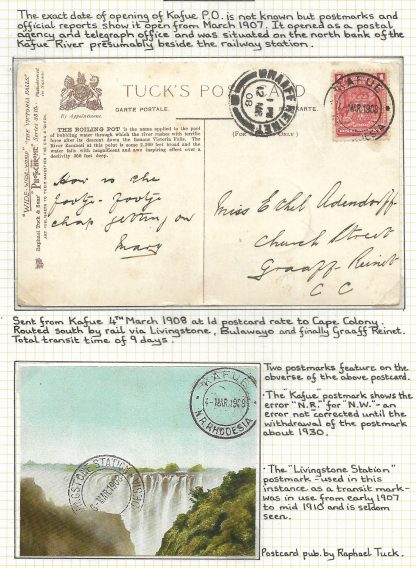 The exact date of opening of Kafue P.O. is not known but postmarks and
official reports show it open from March 1907. It opened as a postal
agency and telegraph office and was situated on the north bank of the
Kafue River presumably beside the railway station.
TUCK'S POST CARD
By Appointment.
CARTE POSTALE.
"WIDE-WIDE-WORLD" "THE VICTORIA FALLS"
Raphael Tuck & Sons'
THE BOILING POT is the name applied to the pool
of bubbling water through which the river rushes with terrific
force after its descent down the famous Victoria Falls. The
River Zambesi at this point is some 2,300 feet broad and the
water falls with magnificent and awe inspiring effect over a
declivity 350 feet deep.
GRAAFF REINET
08
KAFUE
MAR.1908
How is the
footy-footze
chap getting on
Mary
Miss Ethel Adendorff
Church Street
Graaff-Reinet
C C
Sent from Kafue 4TH March 1908 at 1d postcard rate to Cape Colony.
Routed south by rail via Livingstone, Bulawayo and finally Graaff Reinet.
Total transit time of 9 days.
KAFUE
4-MAR.1908
N.R.RHODESIA
Two postmarks feature on the
obverse of the above postcard.
·The "Kafue" postmark shows the
error "N.R." for "N.W." - an
error not corrected until the
withdrawal of the postmark
about 1930.
·The "Livingstone Station"
postmark - used in this
instance as a transit mark -
was in use from early 1907
to mid 1910 and is seldom
seen.
Postcard pub. by Raphael Tuck.